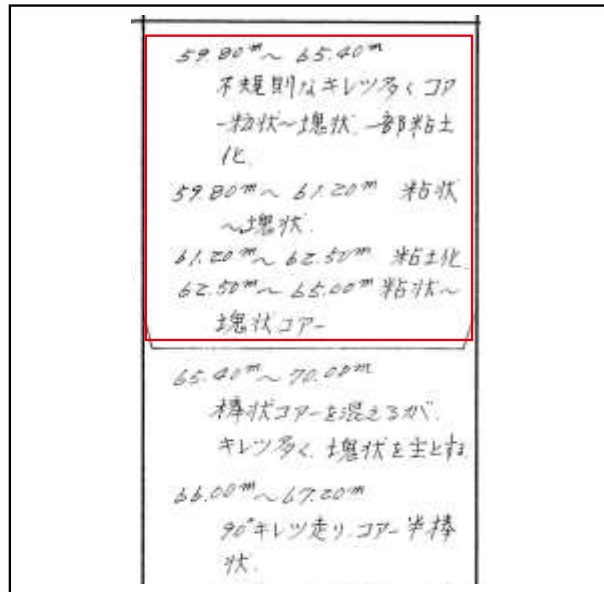 59.80m～65.40m
不規則なキレツ多くコア
ー粒状～塊状.一部粘土
化.
59.80m～61.20m 粘状
～塊状.
61.20m～62.50m 粘土化.
62.50m～65.00m 粘状～
塊状コアー
65.40m～70.00m
棒状コアーを混えるが.
キレツ多く.塊状を主とする
66.00m～67.20m
90°キレツ走り.コアー半棒
状.